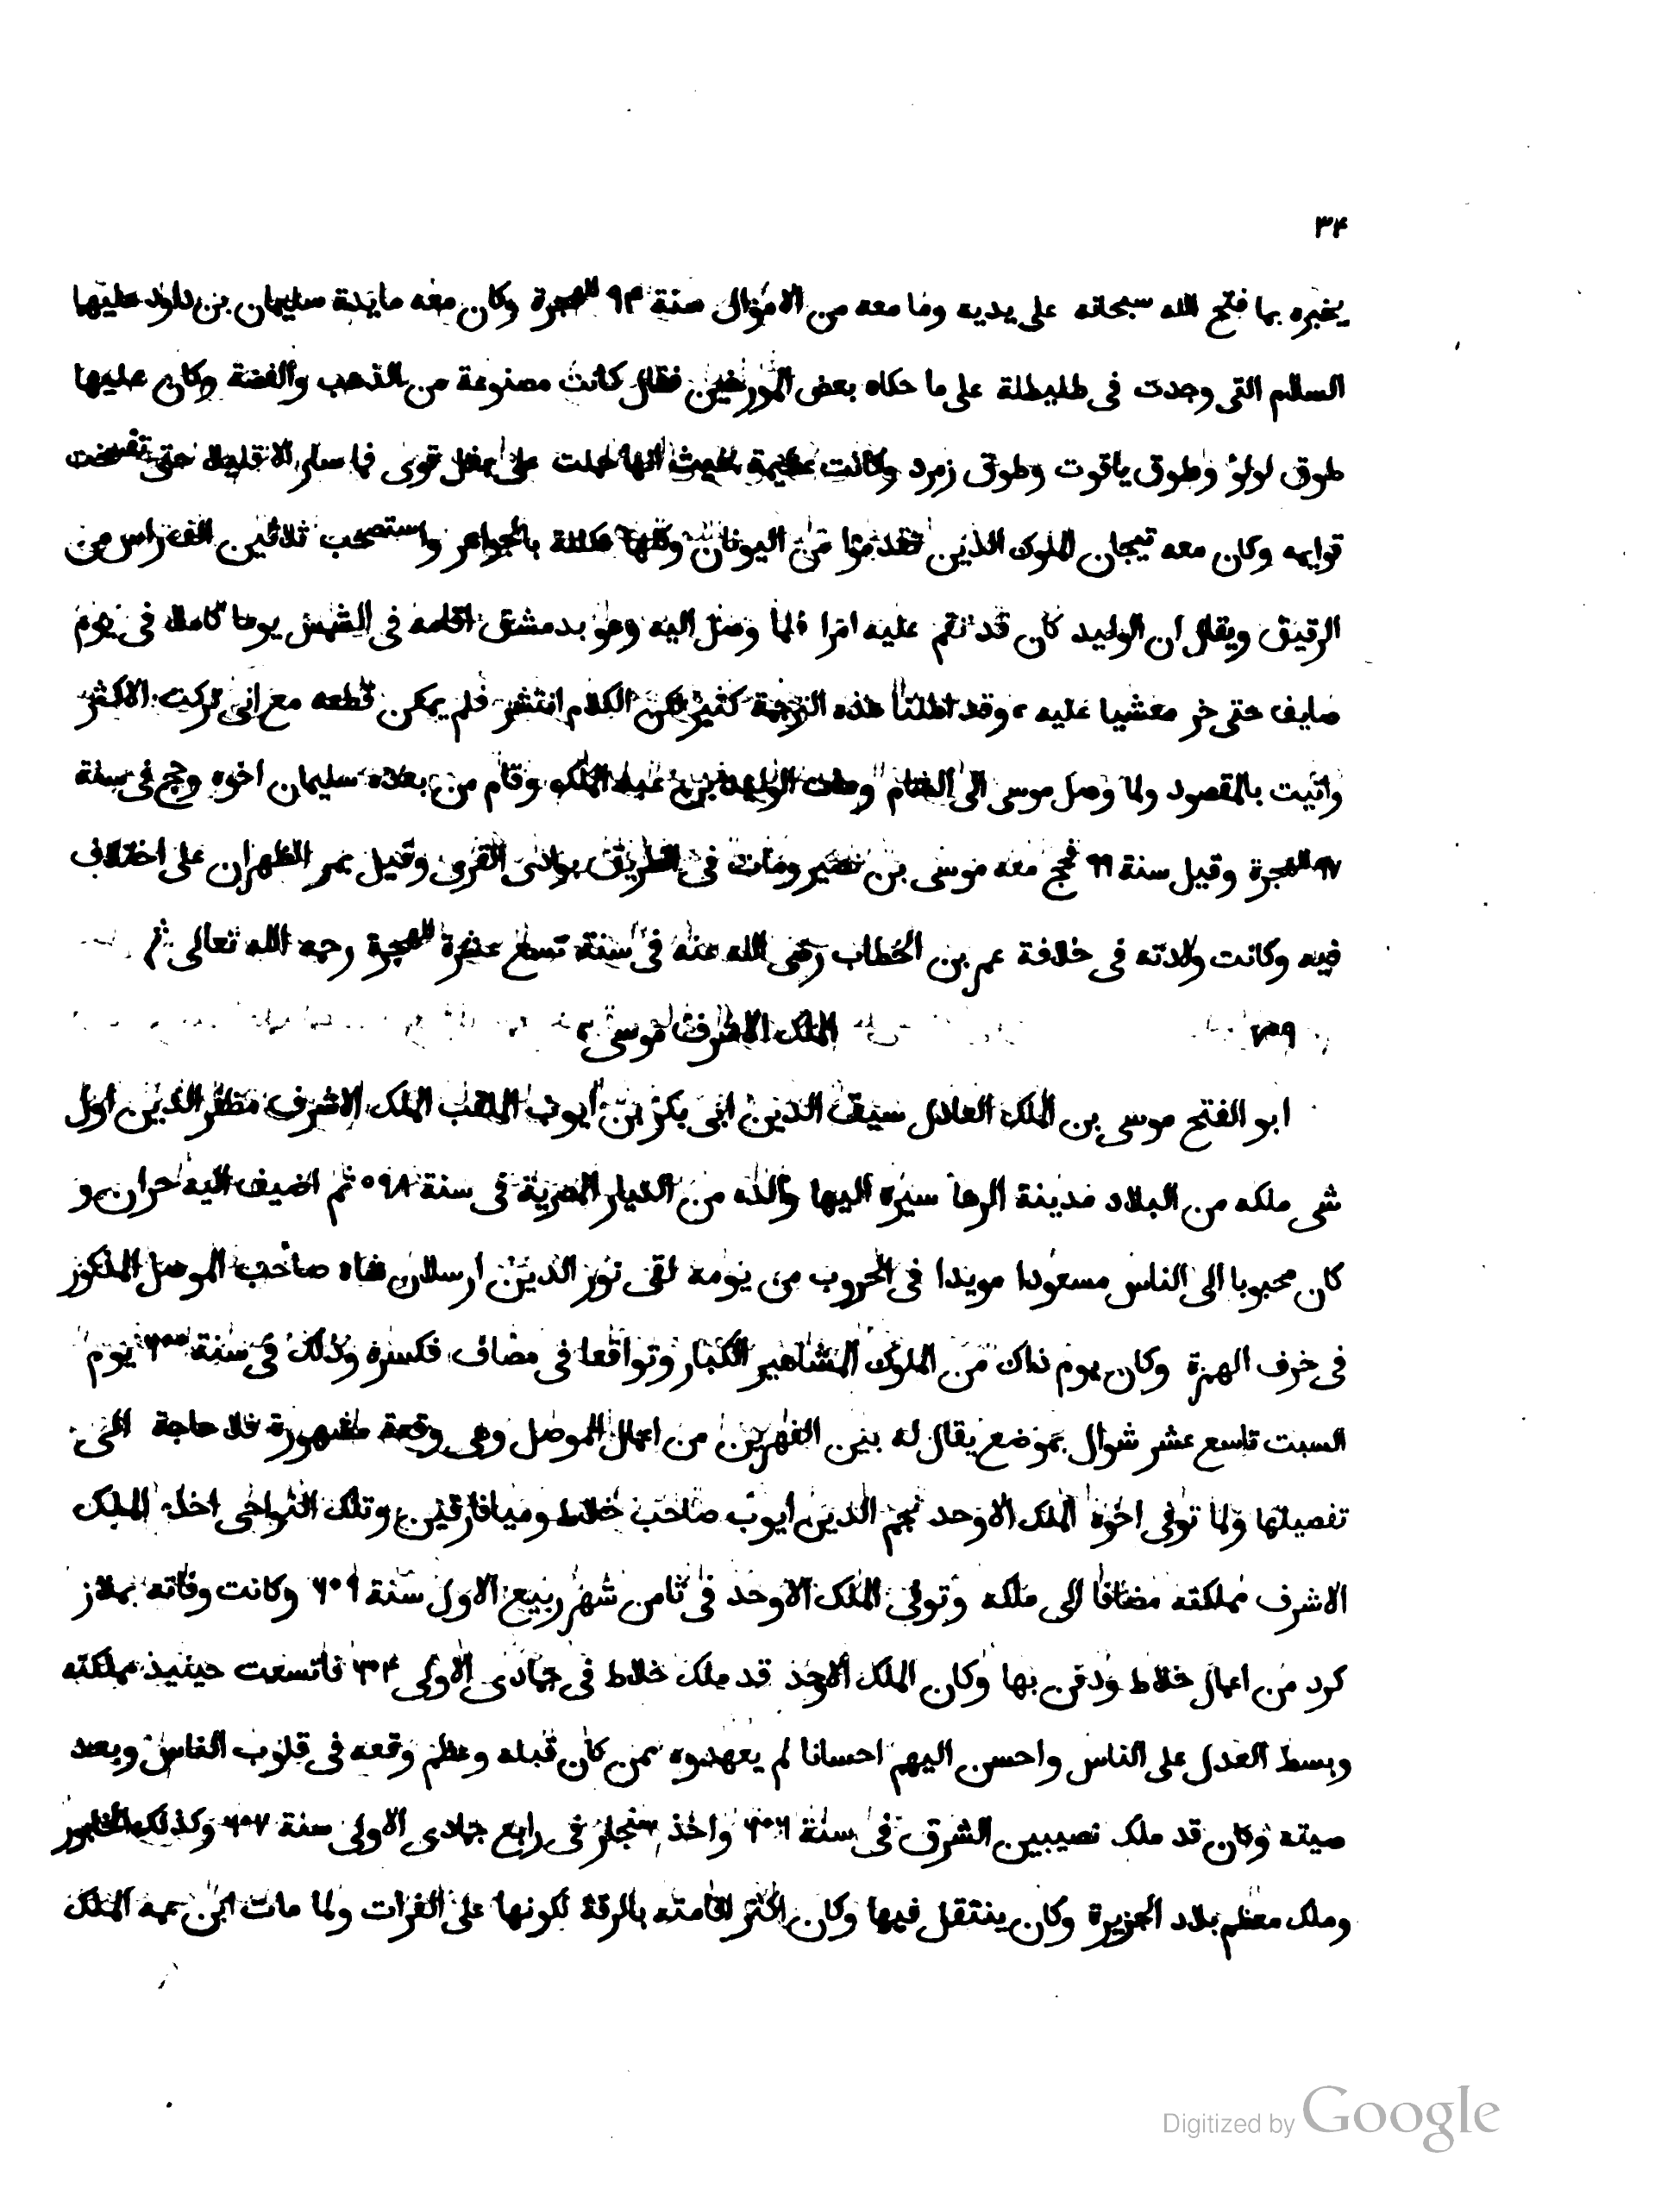 ٣۴
يخبره بما فتح الله سبحانه على يديه وما معه من الاموال سنة ٩۴ للهجرة وكان معه مايدة سليمان بن داود عليهما
السلام التى وجدت فى طليطلة على ما حكاه بعض المورخين فقال كانت مصنوعة من الذهب والفضة وكان عليها
طوق لولو وطوق ياقوت وطوق زمرد وكانت عظيمة بحيث انها حملت على بغل قوى فما سار الا قليلا حتى تفسخت
قوايمه وكان معه تيجان الملوك الذين تقدموا من اليونان وكلها مكللة بالجواهر واستصحب ثلاثين الف راس من
الرقيق ويقال ان الوليد كان قد نقم عليه امرا فلما وصل اليه وهو بدمشق اقامه فى الشمس يوما كاملا فى يوم
صايف حتى خر مغشيا عليه ، وقد اطلنا هذه الترجمة كثيرا لكن الكلام انتشر فلم يمكن قطعه مع انى تركت الاكثر
واتيت بالمقصود ولما وصل موسى الى الشام ومات الوليد بن عبد الملك وقام من بعده سليمان اخوه وحج فى سنة
٩٧ للهجرة وقيل سنة ٩٩ فحج معه موسى بن نصير ومات فى الطريق بوادى القرى وقيل بمر الظهران على اختلاف
فيه وكانت ولادته فى خلافة عمر بن الخطاب رضى الله عنه فى سنة تسع عشرة للهجرة رحمه الله تعالى
٧٥٩ الملك الاشرف موسى ،
ابو الفتح موسى بن الملك العادل سيف الدين ابى بكر بن ايوب الملقب الملك الاشرف مظفر الدين اول
شى ملكه من البلاد مدينة الرها سيره اليها والده من الديار المصرية فى سنة ٥٩٨ ثم اضيف اليه حران و
كان محبوبا الى الناس مسعودا مويدا فى الحروب من يومه لقى نور الدين ارسلان شاه صاحب الموصل المذكور
فى حرف الهمزة وكان يوم ذاك من الملوك المشاهير الكبار وتواقعا فى مصاف فكسره وذلك فى سنة ٦٠٠ يوم
السبت تاسع عشر شوال بموضع يقال له بين النهرين من اعمال الموصل وهى وقعة مشهورة فلا حاجة الى
تفصيلها ولما توفى اخوه الملك الاوحد نجم الدين ايوب صاحب خلاط وميافارقين وتلك النواحى اخذ الملك
الاشرف مملكته مضافا الى ملكه وتوفى الملك الاوحد فى ثامن شهر ربيع الاول سنة ٦٠٩ وكانت وفاته بملاز
كرد من اعمال خلاط ودفن بها وكان الملك الاوحد قد ملك خلاط فى جمادى الاولى ٦٠۴ فاتسعت حينيذ مملكته
وبسط العدل على الناس واحسن اليهم احسانا لم يعهدوه ممن كان قبله وعظم وقعه فى قلوب الناس وبعد
صيته وكان قد ملك نصيبين الشرق فى سنة ٦٠٦ واخذ سنجار فى رابع جمادى الاولى سنة ٦٠٧ وكذلك الخابور
وملك معظم بلاد الجزيرة وكان ينتقل فيها وكان اكثر اقامته بالرقة لكونها على الفرات ولما مات ابن عمه الملك
Digitized by Google